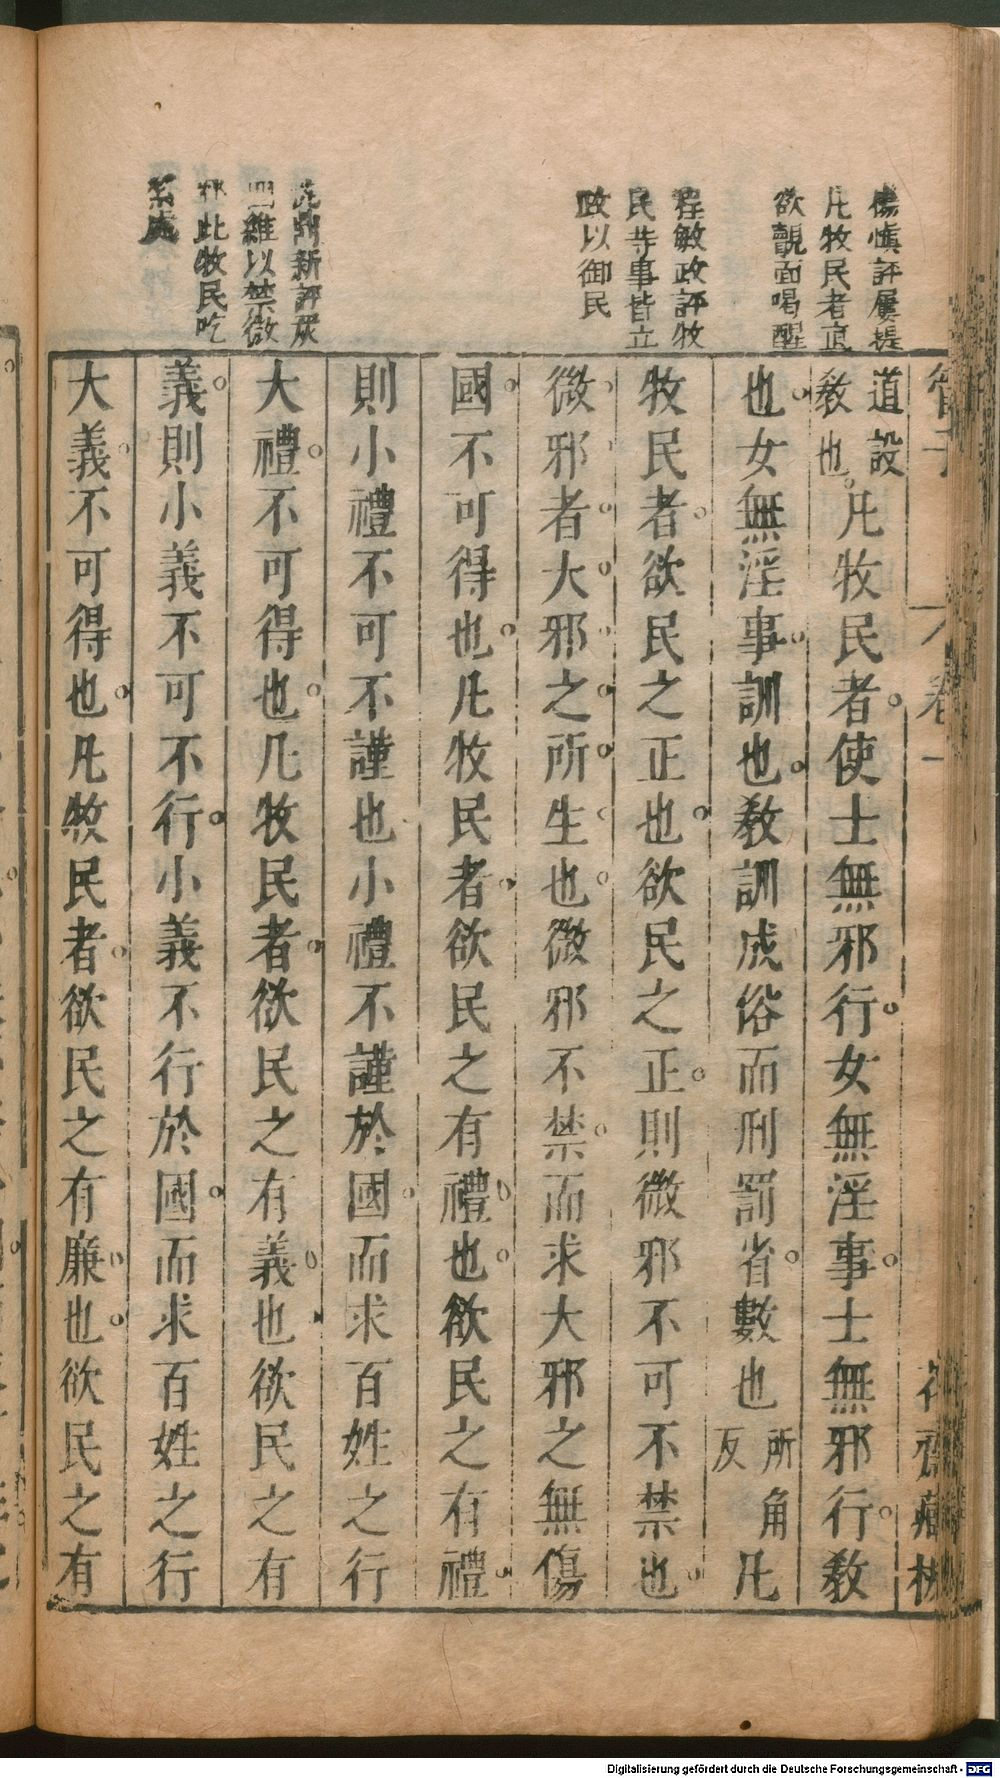 楊慎評屢提
凡牧民者直
欲覿面喝醒
程敏政評牧
民等事皆立
政以御民
鼎新評張
四維以禁微
邪此牧民吃
緊處
管子 卷一 花齋藏板
道設
教也
凡牧民者使士無邪行女無淫事士無邪行教
也女無淫事訓也教訓成俗而刑罰省數也
所角
反
凡
牧民者欲民之正也欲民之正則微邪不可不禁也
微邪者大邪之所生也微邪不禁而求大邪之無傷
國不可得也凡牧民者欲民之有禮也欲民之有禮
則小禮不可不謹也小禮不謹於國而求百姓之行
大禮不可得也凡牧民者欲民之有義也欲民之有
義則小義不可不行小義不行於國而求百姓之行
大義不可得也凡牧民者欲民之有廉也欲民之有
Digitalisierung gefördert durch die Deutsche Forschungsgemeinschaft - DFG